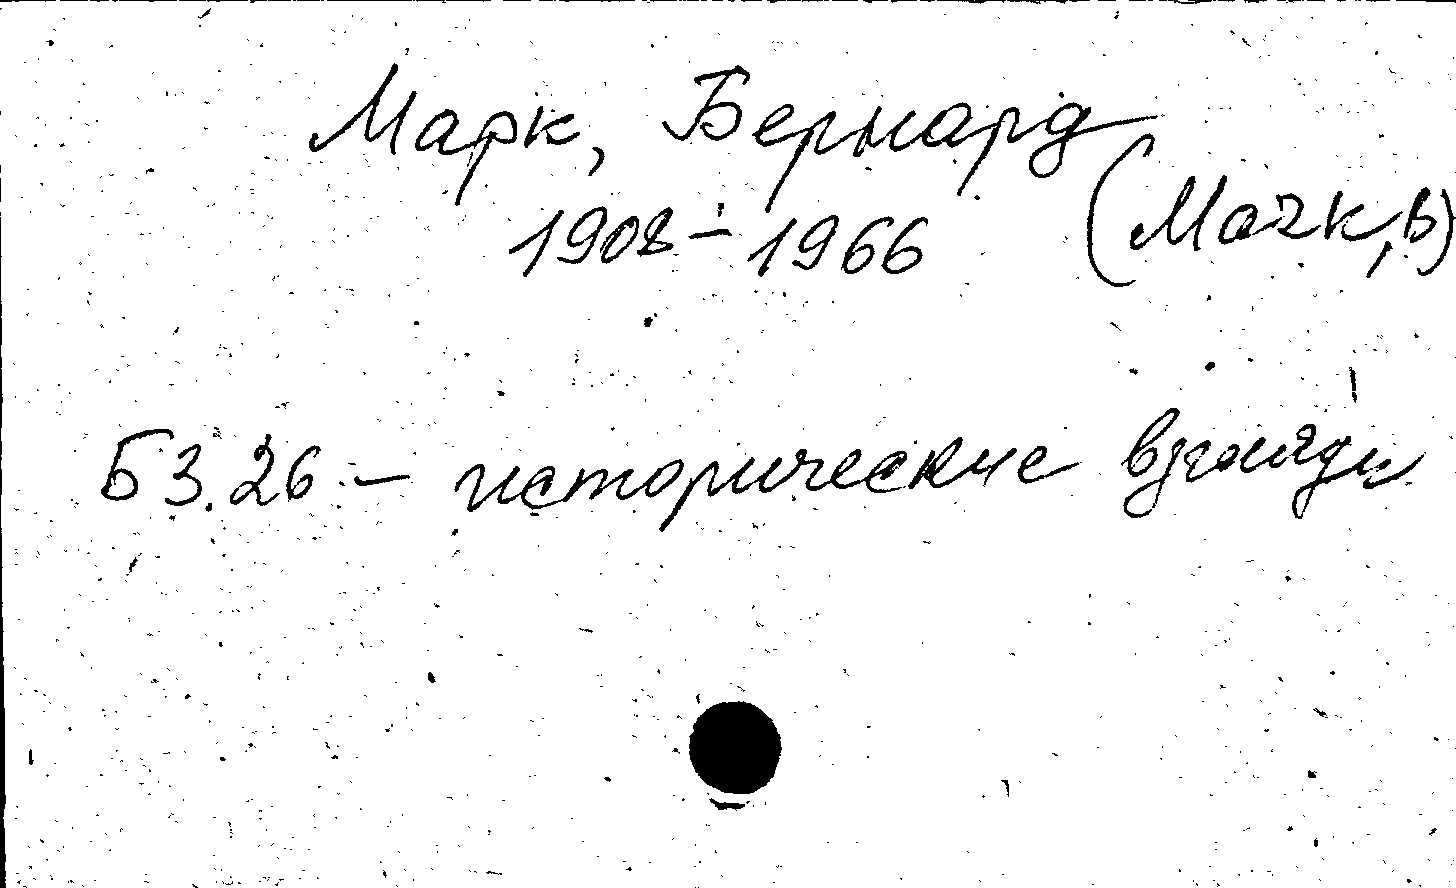 Марк, Бернард
1908-1966 (Mark, B)
Б3.26 - исторические взгляды